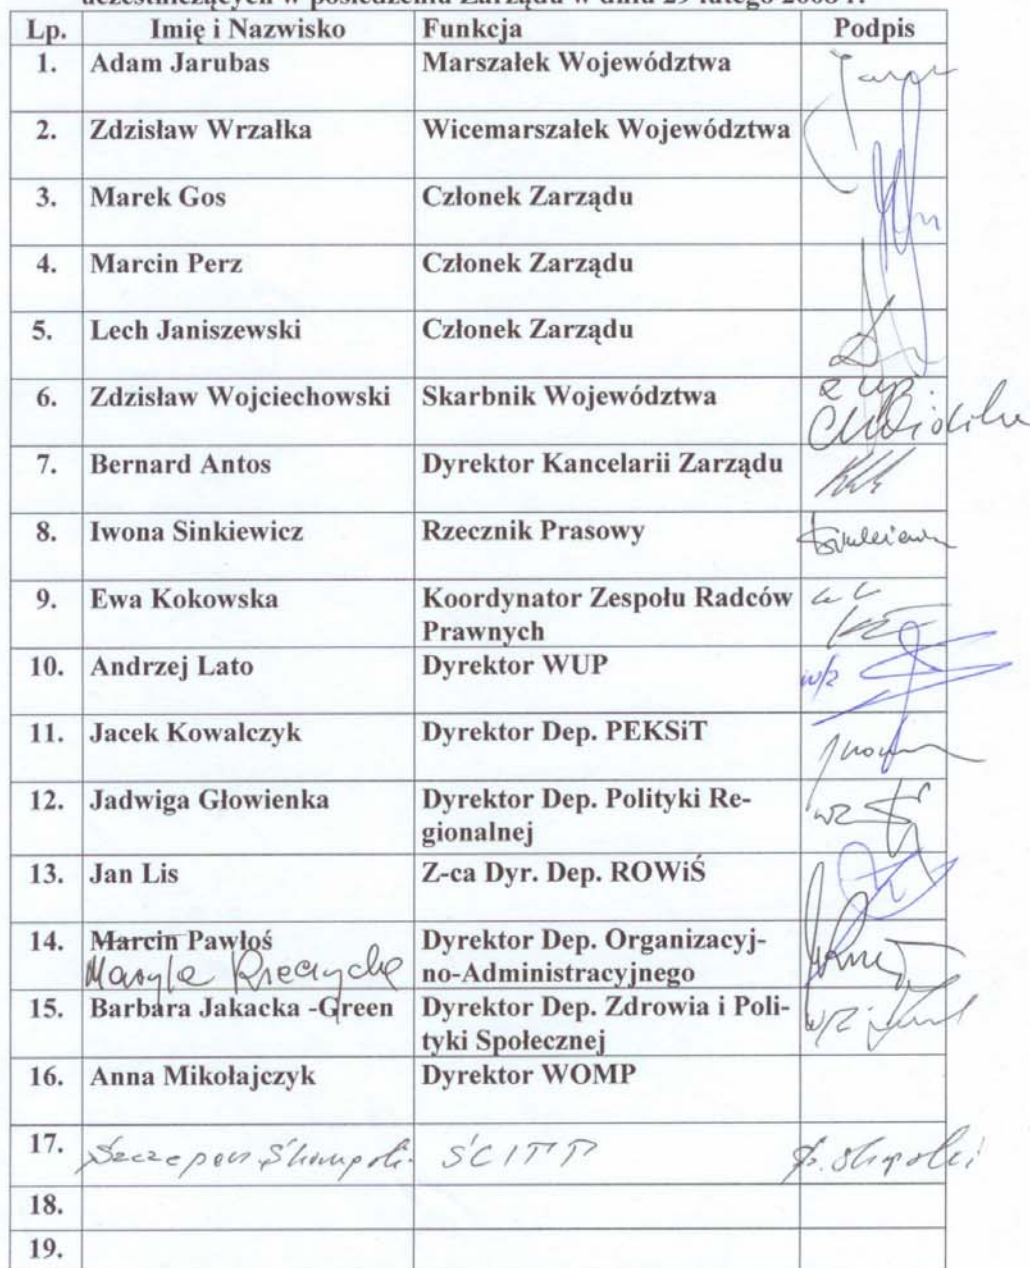 uczestniczących w posiedzeniu Zarządu w dniu 29 lutego 2008 r.
Lp. Imię i Nazwisko Funkcja Podpis
1. Adam Jarubas Marszałek Województwa
2. Zdzisław Wrzałka Wicemarszałek Województwa
3. Marek Gos Członek Zarządu
4. Marcin Perz Członek Zarządu
5. Lech Janiszewski Członek Zarządu
6. Zdzisław Wojciechowski Skarbnik Województwa z up.
7. Bernard Antos Dyrektor Kancelarii Zarządu
8. Iwona Sinkiewicz Rzecznik Prasowy
9. Ewa Kokowska Koordynator Zespołu Radców
Prawnych
10. Andrzej Lato Dyrektor WUP w/z
11. Jacek Kowalczyk Dyrektor Dep. PEKSiT
12. Jadwiga Głowienka Dyrektor Dep. Polityki Re-
gionalnej wz
13. Jan Lis Z-ca Dyr. Dep. ROWiŚ
14. Marcin Pawłoś Dyrektor Dep. Organizacyj-
no-Administracyjnego
15. Barbara Jakacka -Green Dyrektor Dep. Zdrowia i Poli-
tyki Społecznej w/z
16. Anna Mikołajczyk Dyrektor WOMP
17. Szczepan Skorupski ŚCITT
18.
19.